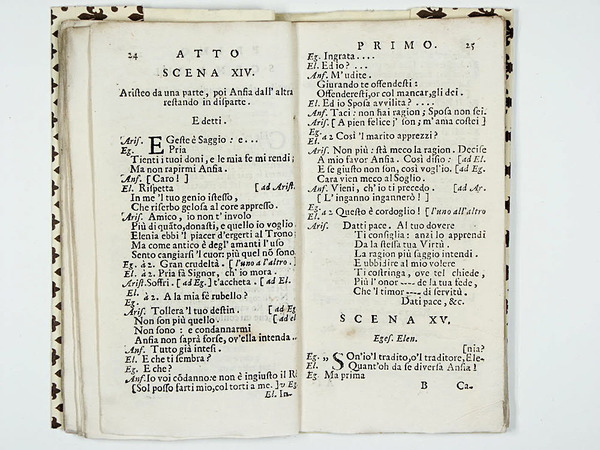 24 ATTO
SCENA XIV.
Aristeo da una parte, poi Ansia dall' altra
restando in disparte.
E detti.
Aris. EGeste è Saggio: e...
Eg. Pria
Tienti i tuoi doni, e le mia fe mi rendi;
Ma non rapirmi Ansia.
Anf. [Caro!]
El. Rispetta [ad Arist.
In me 'l tuo genio istesso,
Che riserbo gelosa al core appresso.
Aris. Amico, io non t' involo
Più di quãto, donasti, e quello io voglio
Elenia ebbi 'l piacer d'ergerti al Trono;
Ma come antico è degl' amanti l'uso
Sento cangiarsi 'l cuor: più quel nõ sono
Eg. à 2. Gran crudeltà. [l'uno a l'altro.]
El. à 2. Pria fà Signor, ch' io mora.
Arist. Soffri. [ad Eg.] t'accheta. [ad El.
El. à 2. A la mia fè rubello?
Eg.
Aris. Tollera 'l tuo destin. [ad Eg
Non son più quello. [ad el
Non sono: e condannarmi
Ansia non saprà forse, ov'ella intenda...
Anf. Tutto già intesi.
El. E che ti sembra?
Eg. E che?
Anf. Io voi cõdanno: e non è ingiusto il R
[Sol posso farti mio, col torti a me.] v Eg
El. In-
PRIMO. 25
Eg. Ingrata....
El. Ed io?...
Anf. M'udite.
Giurando te offendesti:
Offenderesti, or col mancar, gli dei.
El. Ed io Sposa avvilita?....
Anf. Taci: non hai ragion; Sposa non sei.
Aris. [A pien felice j' son; m'ama costei]
Eg.
El. à 2 Così 'l marito apprezzi?
Aris. Non più: stà meco la ragion. Decise
A mio favor Ansia. Così disio: [ad El.
E se giusto non son, così vogl'io. [ad Eg
Cara vien meco al Soglio.
Anf. Vieni, ch' io ti precedo. [ad Ar.
[L'inganno ingannerò!]
Eg.
El. à 2 Questo è cordoglio! [l'uno all'altro
Aris. Datti pace. Al tuo dovere
Ti consiglia: anzi lo apprendi
Da la stessa tua Virtù.
La ragion più saggio intendi.
E ubbidire al mio volere
Ti costringa, ove tel chiede,
Più l'onor ---- de la tua fede,
Che 'l timor ---- di servitù.
Dati pace, &c.
SCENA XV.
Eges. Elen.
[nia?
Eg. „ SOn'io'l tradito, o'l traditore, Ele-
El. Quant'oh da se diversa Ansia!
Eg Ma prima
B Ca-